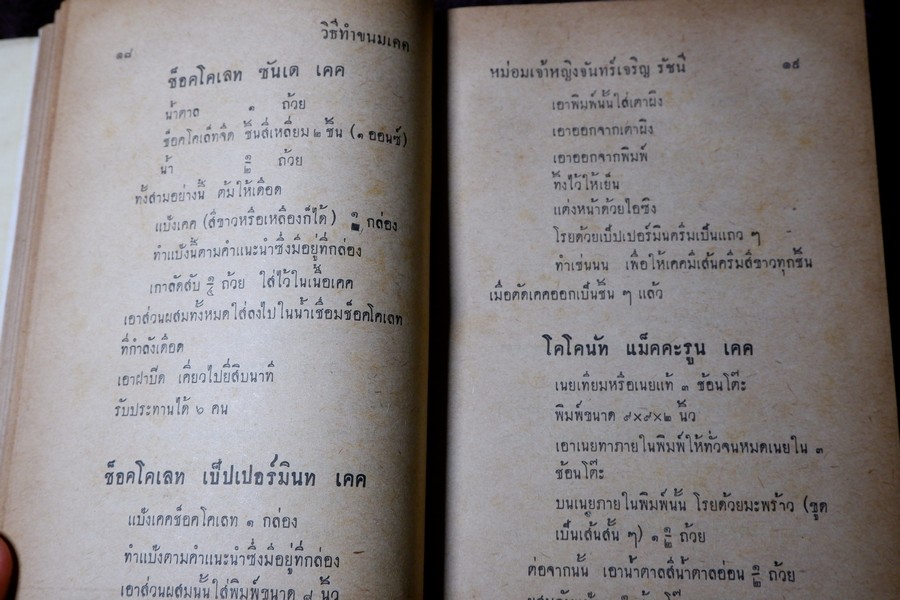 วิธีทำขนมเคค
๑๘
ช็อคโคเลท ซันเด เคค
น้ำตาล ๑ ถ้วย
ช็อคโคเล็ทจืด ชิ้นสี่เหลี่ยม ๒ ชิ้น (๑ ออนซ์)
น้ำ ๑/๒ ถ้วย
ทั้งสามอย่างนี้ ต้มให้เดือด
แป้งเคค (สีขาวหรือเหลืองก็ได้) ๑/๒ กล่อง
ทำแป้งนี้ตามคำแนะนำซึ่งมีอยู่ที่กล่อง
เกาลัดสับ ๑/๔ ถ้วย ใส่ไว้ในเนื้อเคค
เอาส่วนผสมทั้งหมดใส่ลงไปในน้ำเชื่อมช็อคโคเลท
ที่กำลังเดือด
เอาฝาปิด เคี่ยวไปยี่สิบนาที
รับประทานได้ ๖ คน
ช็อคโคเลท เป็ปเปอร์มินท เคค
แป้งเคคช็อคโคเลท ๑ กล่อง
ทำแป้งตามคำแนะนำซึ่งมีอยู่ที่กล่อง
เอาส่วนผสมนั้นใส่พิมพ์ขนาด ๘ นิ้ว
หม่อมเจ้าหญิงจันทร์เจริญ รัชนี ๑๙
เอาพิมพ์นั้นใส่เตาผิง
เอาออกจากเตาผิง
เอาออกจากพิมพ์
ทิ้งไว้ให้เย็น
แต่งหน้าด้วยไอซิง
โรยด้วยเป็ปเปอร์มินครีมเป็นแถว ๆ
ทำเช่นนี้ เพื่อให้เคคมีเส้นครีมสีขาวทุกชิ้น
เมื่อตัดเคคออกเป็นชิ้น ๆ แล้ว
โคโคนัท แม็คคะรูน เคค
เนยเทียมหรือเนยแท้ ๓ ช้อนโต๊ะ
พิมพ์ขนาด ๙×๙×๒ นิ้ว
เอาเนยทาภายในพิมพ์ให้ทั่วจนหมดเนยใน ๓
ช้อนโต๊ะ
บนเนยภายในพิมพ์นั้น โรยด้วยมะพร้าว (ขูด
เป็นเส้นสั้น ๆ) ๑ ๑/๒ ถ้วย
ต่อจากนั้น เอาน้ำตาลสีน้ำตาลอ่อน ๑/๒ ถ้วย